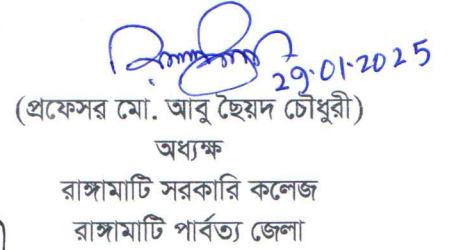 29.01.2025
(প্রফেসর মো. আবু ছৈয়দ চৌধুরী)
অধ্যক্ষ
রাঙ্গামাটি সরকারি কলেজ
রাঙ্গামাটি পার্বত্য জেলা